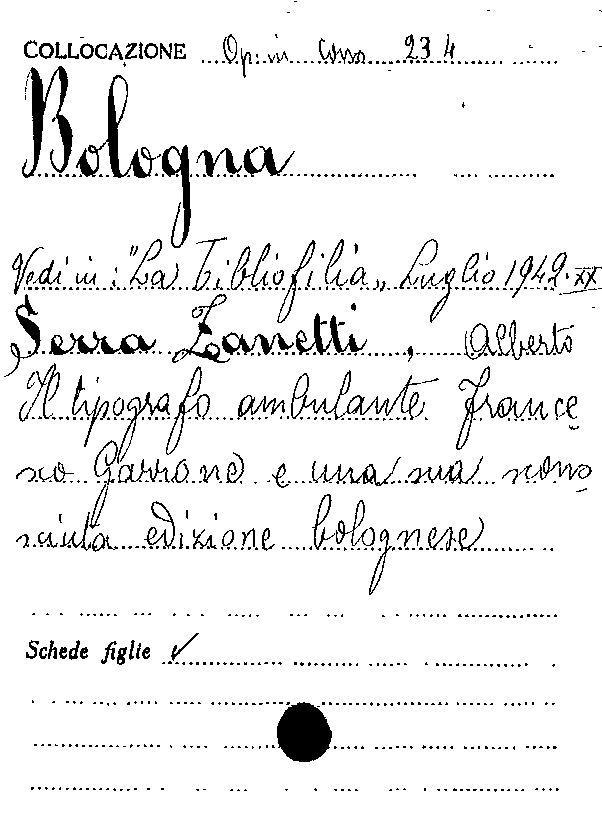 COLLOCAZIONE Op. in Corso 234
Bologna
Vedi in: "La Bibliofilia" Luglio 1942. XX
Serra Zanetti, Alberto
Il tipografo ambulante France
sco Garrone e una sua scono
sciuta edizione bolognese
Schede figlie ✓